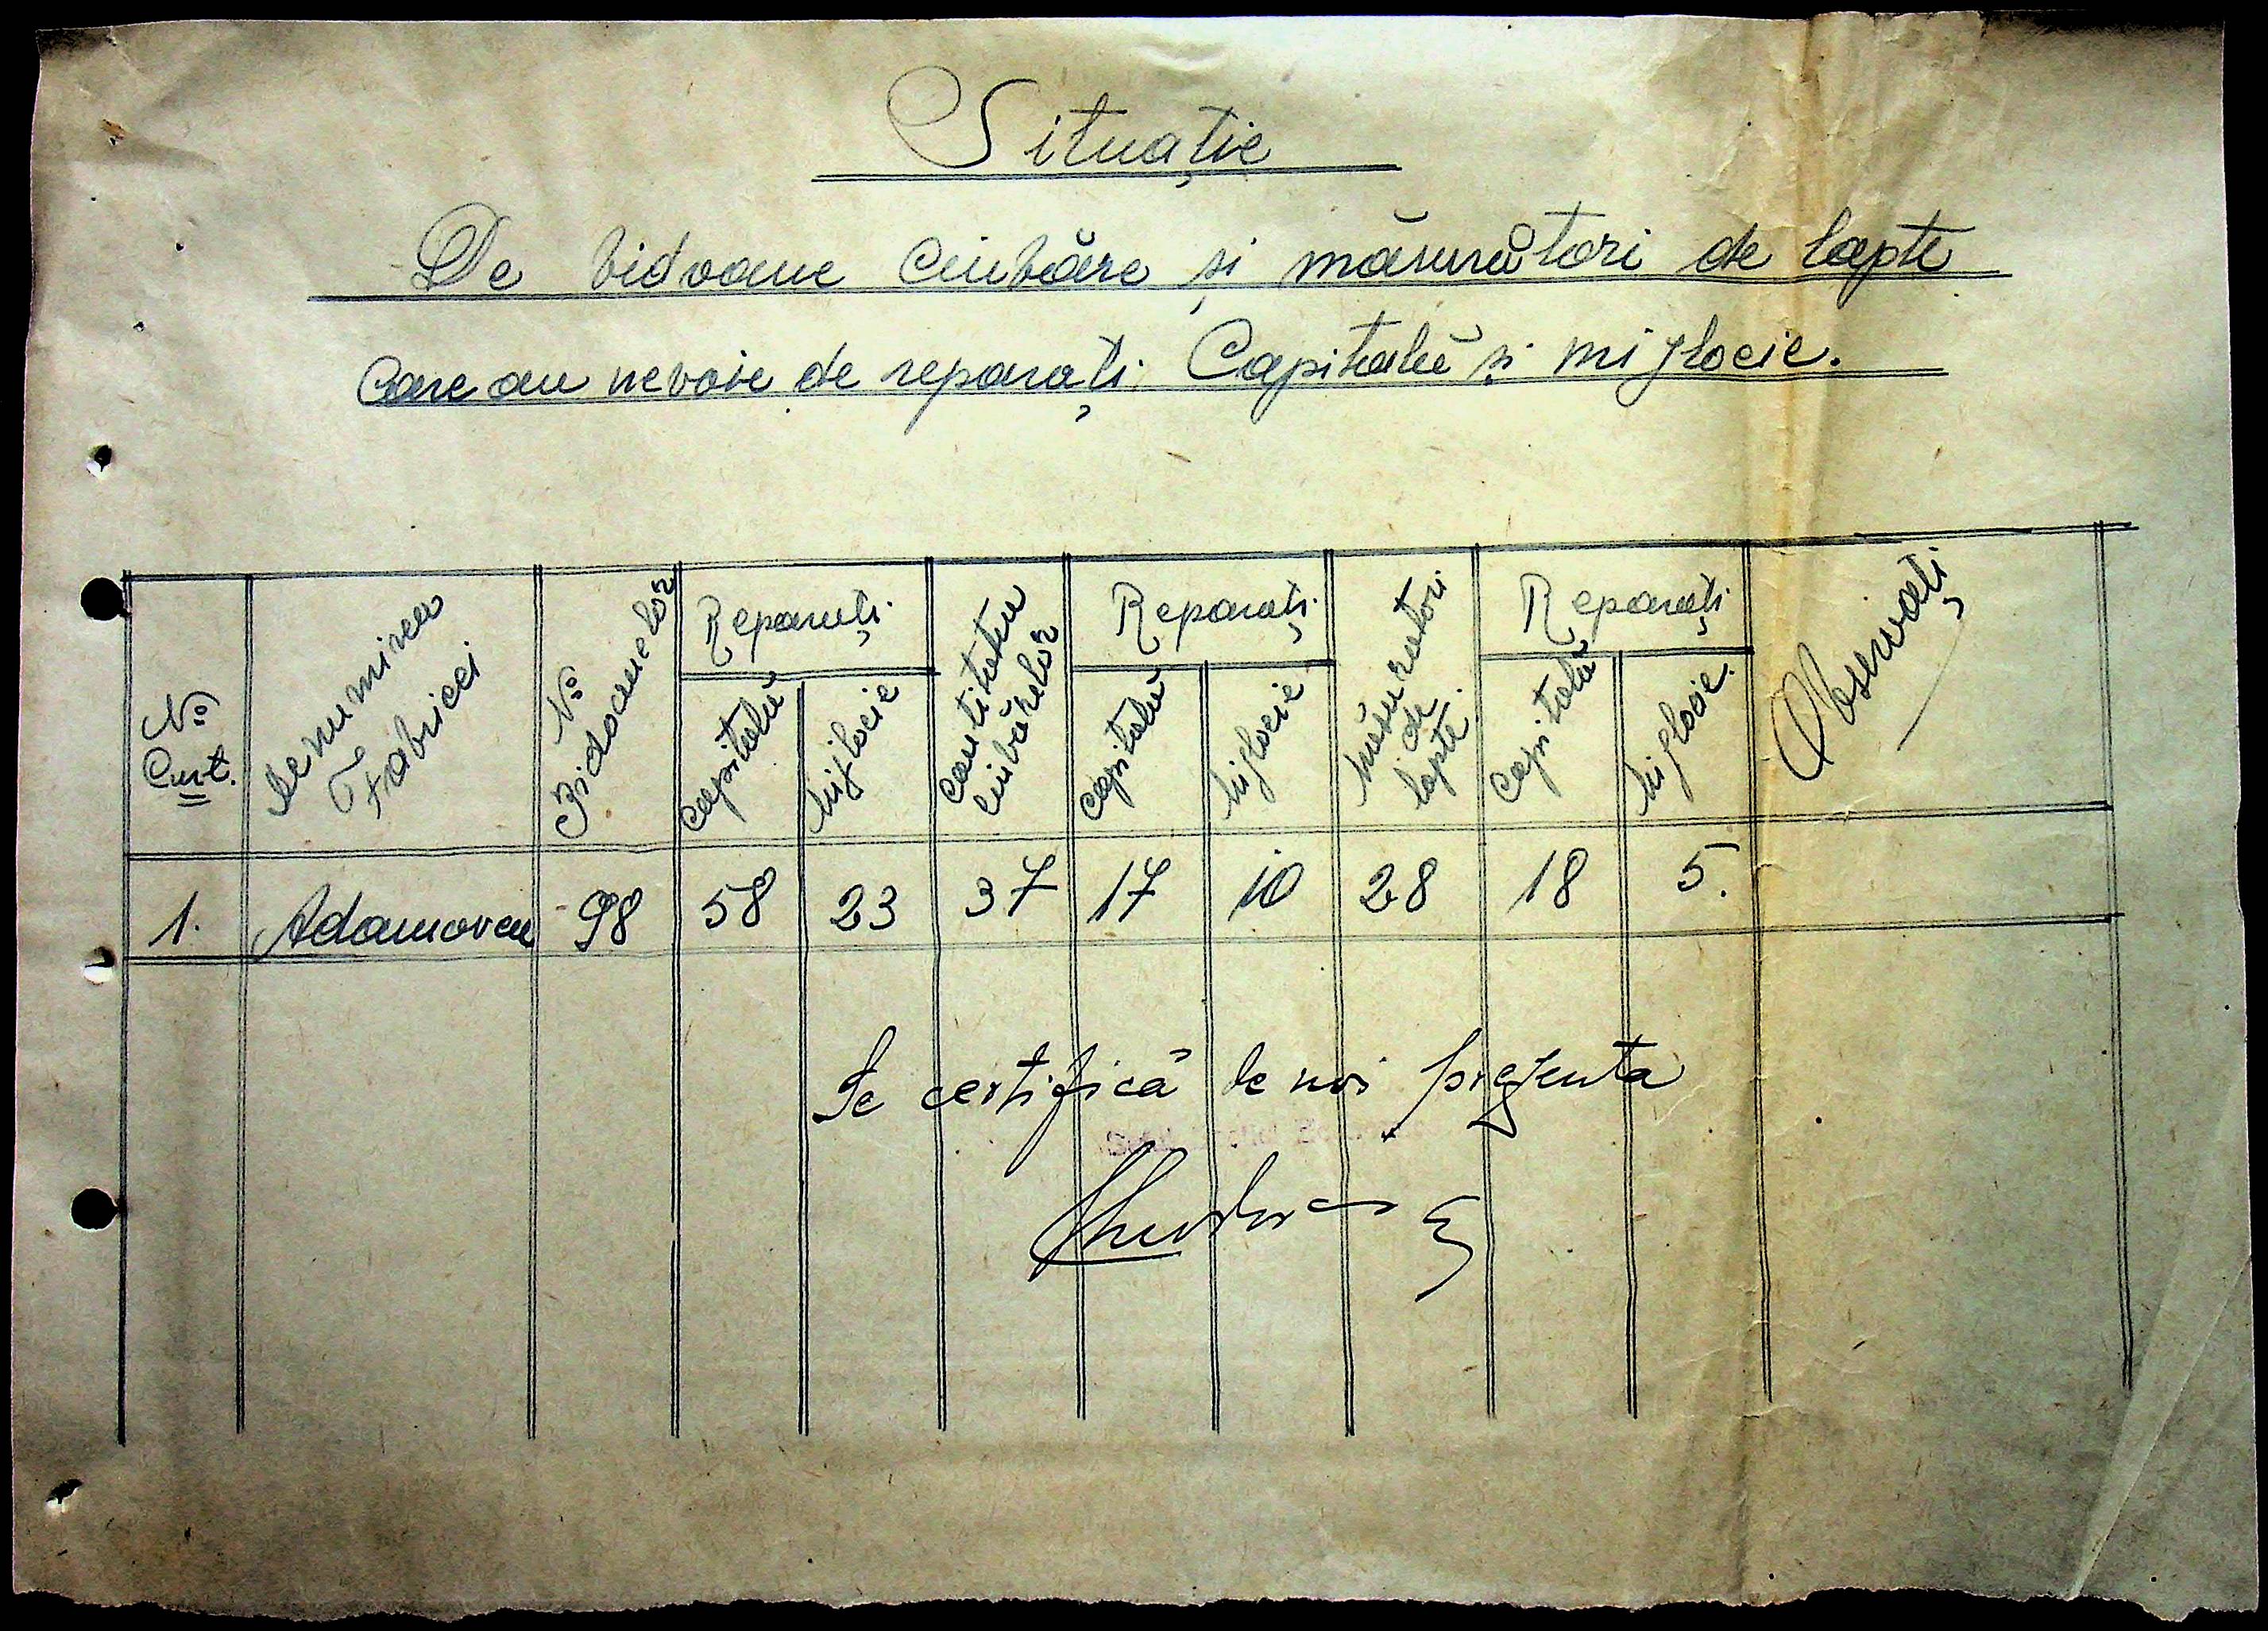 Situație
De bidoane Ciubăre și măsurători de lapte
Care au nevoie de reparați Capitală și mijlocie.
No Curt.
Denumirea Fabricei
No Bidoanelor
Reparați
capitală
mijlocie
Cantitatea ciubărelor
Reparați
capitală
mijlocie
măsuratori de lapte
Reparați
capitală
mijlocie
Observați
1. Adamovca 98 58 23 37 17 10 28 18 5.
Se certifică de noi prezenta